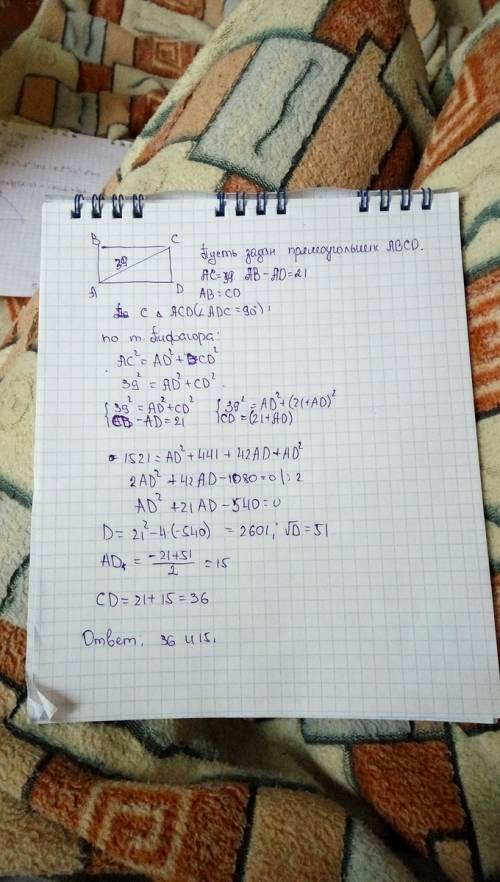 B C
39
A D
Пусть задан прямоугольник ABCD.
AC=39 AB-AD=21
AB=CD
C △ ACD(∠ADC=90°):
по т. Пифагора:
AC²=AD²+CD²
39²=AD²+CD²
{39²=AD²+CD² {39²=AD²+(21+AD)²
CD-AD=21 CD=(21+AD)
1521=AD²+441+42AD+AD²
2AD²+42AD-1080=0|:2
AD²+21AD-540=0
D=21²-4(-540)=2601; √D=51
AD=(-21+51)/2=15
CD=21+15=36
Ответ. 36 и 15.